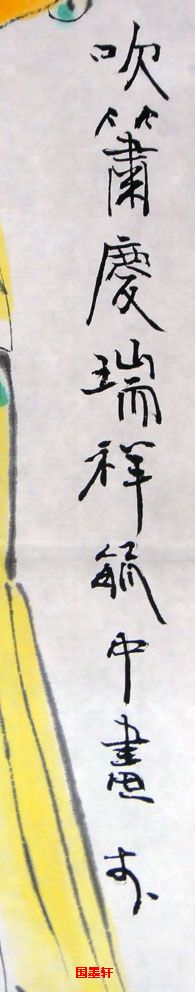 吹簫慶瑞祥毓中畫於
国墨轩